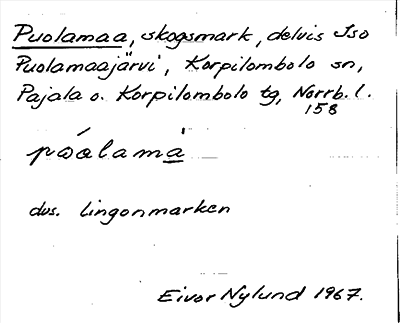 Puolamaa, skogsmark, delvis Iso
Puolamaajärvi, Korpilombolo sn,
Pajala o. Korpilombolo tg, Norrb. l.
158
púalamà
dvs. lingonmarken
Eivor Nylund 1967.